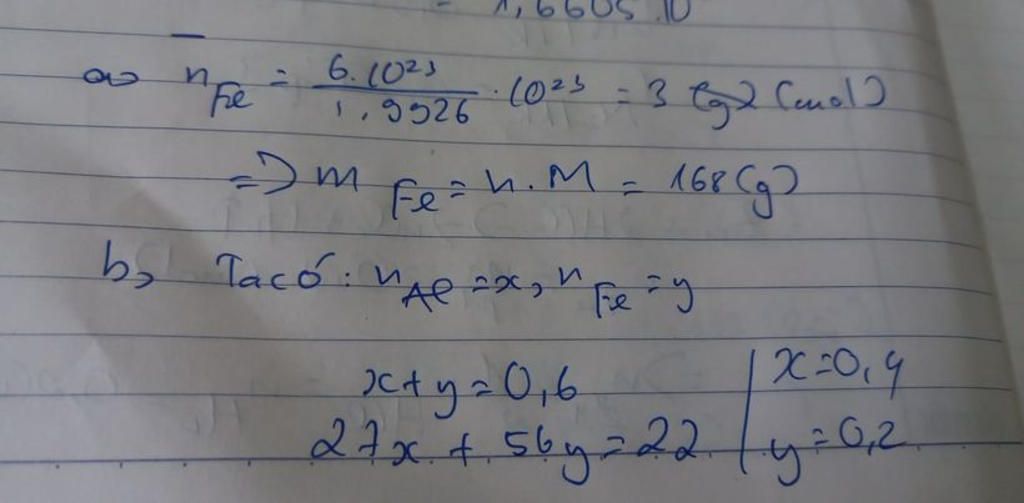 1,6605.10
a) n Fe = 6.10²³ / 1,9926 . 10²³ = 3 (mol)
=> m Fe = n.M = 168(g)
b, Ta có: n Al = x, n Fe = y
x+y=0,6 | x=0,4
27x + 56y = 22 | y=0,2